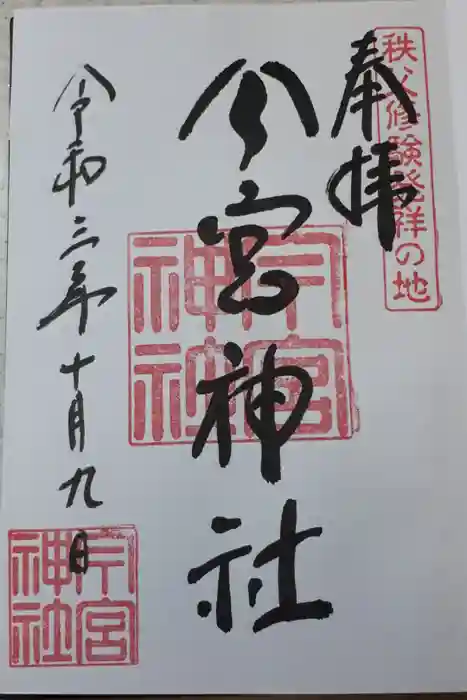 秩父修験発祥の地
奉拝
今宮神社
今宮神社
令和三年十月九日
今宮神社